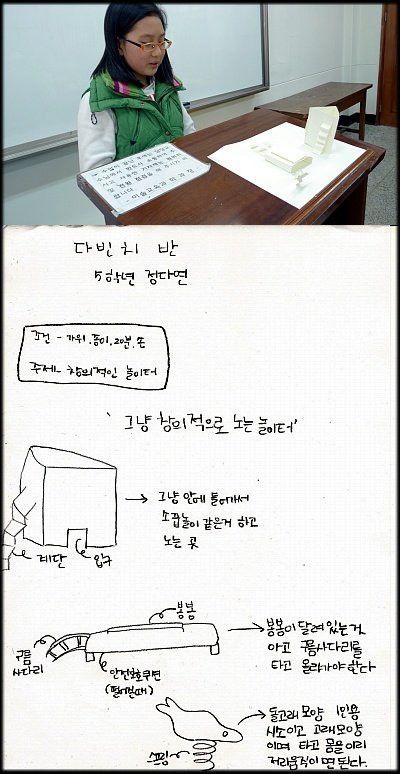 다빈치 반
5학년 정다연
조건 - 가위, 종이, 20분, 손
주제 - 창의적인 놀이터
'그냥 창의적으로 노는 놀이터'
그냥 안에 들어가서
소꿉놀이 같은거 하고
노는 곳
계단
입구
봉봉
구름
사다리
안전쿠션
봉봉이 달려 있는 것
이고 구름사다리를
타고 올라가야 한다
돌고래 모양 1인용
시소이고 고래모양
이며 타고 몸을 이리
저리 움직이면 된다.
스프링